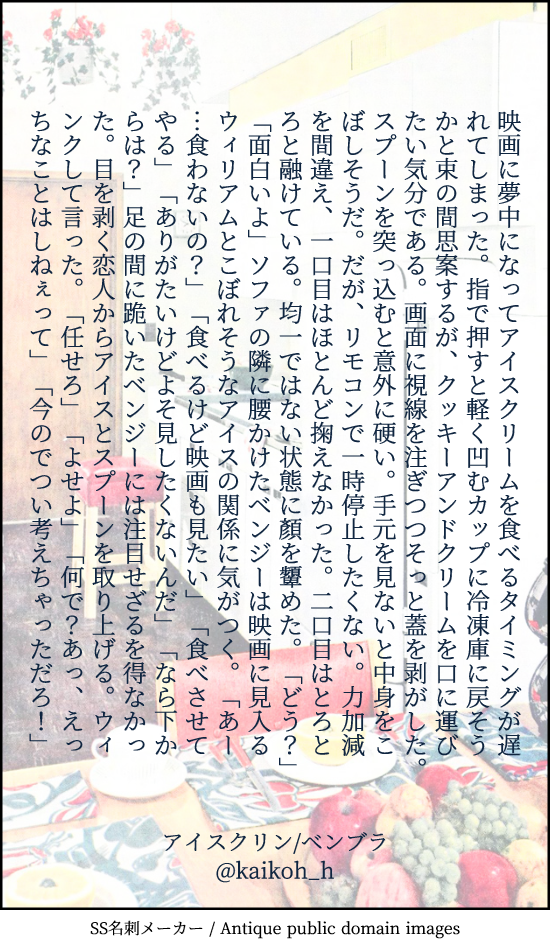 映画に夢中になってアイスクリームを食べるタイミングが遅
れてしまった。指で押すと軽く凹むカップに冷凍庫に戻そう
かと束の間思案するが、クッキーアンドクリームを口に運び
たい気分である。画面に視線を注ぎつつそっと蓋を剥がした。
スプーンを突っ込むと意外に硬い。手元を見ないと中身をこ
ぼしそうだ。だが、リモコンで一時停止したくない。力加減
を間違え、一口目はほとんど掬えなかった。二口目はとろと
ろと融けている。均一ではない状態に顔を顰めた。「どう？」
「面白いよ」ソファの隣に腰かけたベンジーは映画に見入る
ウィリアムとこぼれそうなアイスの関係に気がつく。「あー
…食わないの？」「食べるけど映画も見たい」「食べさせて
やる」「ありがたいけどよそ見したくないんだ」「なら下か
らは？」足の間に跪いたベンジーには注目せざるを得なかっ
た。目を剥く恋人からアイスとスプーンを取り上げる。ウィ
ンクして言った。「任せろ」「よせよ」「何で？あっ、えっ
ちなことはしねぇって」「今のでつい考えちゃっただろ！」
アイスクリン/ベンブラ
@kaikoh_h
SS名刺メーカー / Antique public domain images